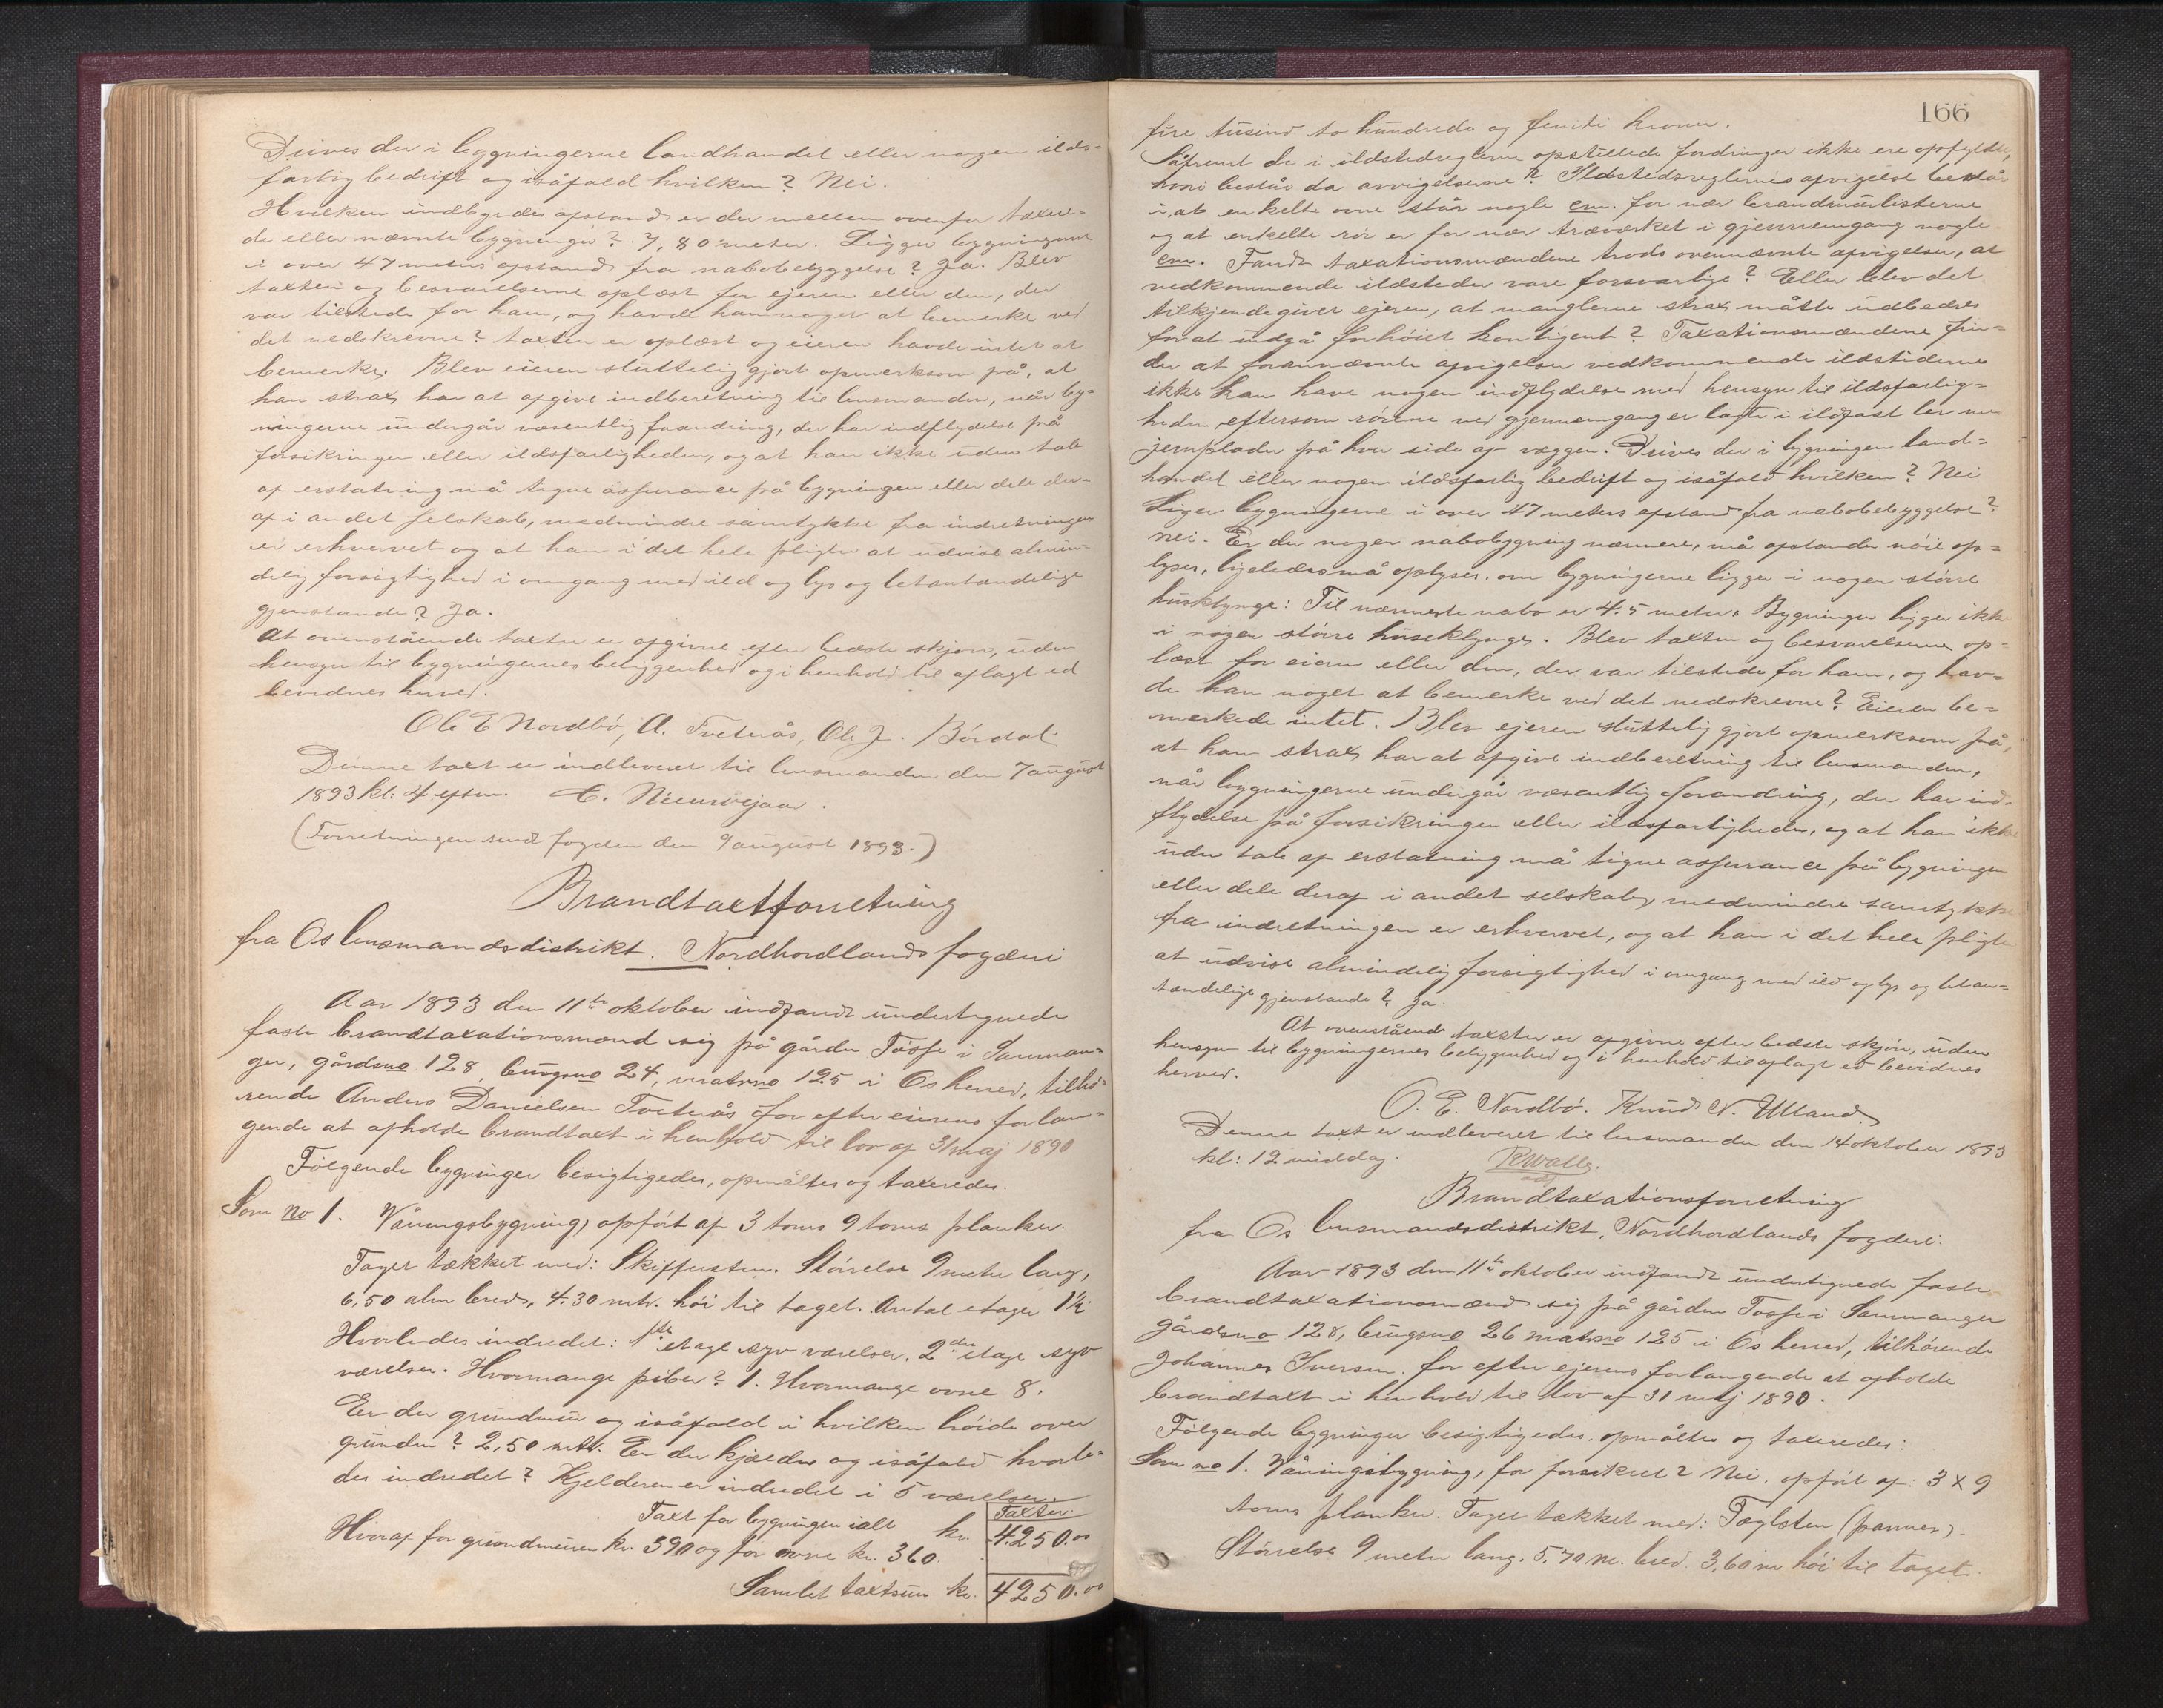 Drives der i bygningerne landhandel eller nogen ilds-
farlig bedrift og isåfald hvilken? Nei.
Hvilken indbyrdes afstand er der mellem ovenfor taxere-
de eller nævnte bygninger? 7,80 meter. Ligger bygningerne
i over 47 meters afstand fra nabobebyggelse? Ja. Blev
taxten og besvarelserne oplæst for ejeren eller den, der
var tilstede for ham, og havde han noget at bemerke ved
det nedskrevne? taxten er oplæst og eieren havde intet at
bemerke. Blev eieren sluttelig gjort opmerksom på, at
han strax har at afgive indberetning til lensmanden, når byg-
ningerne undergår væsentlig forandring, der har indflydelse på
forsikringen eller ildsfarligheden, og at han ikke uden tab
af erstatning må tegne assurance på bygningen eller dele der-
af i andet selskab, medmindre samtykke fra indretningen
er erhvervet og at han i det hele pligter at udvise almin-
delig forsigtighed i omgang med ild og lys og letantændelige
gjenstande? Ja.
At ovenstående taxter er afgivne efter bedste skjøn, uden
hensyn til bygningernes beliggenhed og i henhold til aflagt ed
bevidnes herved.
Ole E Nordbö, A. Tveterås, Ole J. Bördal
Denne taxt er indleveret til lensmanden den 7 august
1893 kl: 4 eftm.
(Forretningen sendt fogden den 9 august 1893.)
Brandtaxtforretning
fra Os lensmandsdistrikt. Nordhordlands fogderi
Aar 1893 den 11te oktober indfandt undertegnede
faste brandtaxationsmænd sig på gården Tösse i Samnan-
ger, gårdsno 128, brugsno 24, matrno 125 i Os herred, tilhö-
rende Anders Danielsen Tveterås for efter eierens forlan-
gende at afholde brandtaxt i henhold til lov af 31 maj 1890
Fölgende bygninger besigtigedes, opmåltes og taxeredes.
Som no 1. Våningsbygning, opfört af 3 toms 9 toms planker.
Taget tækket med: Skiffersten. Störrelse 9 meter lang,
6,50 alm bred, 4.30 mtr. höi til taget. Antal etager 1½
Hvorledes indredet: 1ste etage syv værelser. 2den etage syv
værelser. Hvormange piber? 1. Hvormange ovne 8.
Er der grundmur og isåfald i hvilken höide over
grunden? 2,50 mtr. Er der kjælder og isåfald hvorle-
des indredet? Kjelderen er indredet i 5 værelser.
Taxter.
Taxt for bygningen ialt kr. 4250.00
Hvoraf for grundmuren kr. 390 og for ovne kr. 360.
Samlet taxtsum kr. 4250.00
166
fire tusind to hundrede og femti kroner.
Såfremt de i ildstedreglerne opstillede fordringer ikke ere opfyldte,
hvori består da avvigelserne? Ildstedsreglernes afvigelse består
i, at enkelte ovne står nogle cm. for nær brandmurlisterne
og at enkelte rör er for nær træværket i gjennemgang nogle
cm. Fandt taxationsmændene trods ovennævnte afvigelser, at
vedkommende ildsteder vare forsvarlige? Eller blev det
tilkjendegivet ejeren, at manglerne strax måtte udbedres
for at undgå forhöiet kontigent? Taxationsmændene fin-
der at forannævnte afvigelser vedkommende ildstederne
ikke kan have nogen indflydelse med hensyn til ildsfarlig-
heden, eftersom rörene ved gjennemgang er lagte i ildfast ler med
jernplader på hver side af væggen. Drives der i bygningen land-
handel eller nogen ildsfarlig bedrift og isåfald hvilken? Nei
Ligger bygningerne i over 47 meters afstand fra nabobebyggelse?
nei. Er der nogen nabobygning nærmere, må afstanden nöie op-
lyses, ligeledes må oplyses, om bygningerne ligger i nogen större
husklynge: Til nærmeste nabo er 4.5 meter. Bygningen ligger ikke
i nogen större huseklynge. Blev taxten og besvarelserne op-
læst for eieren eller den, der var tilstede for ham, og hav-
de han noget at bemerke ved det nedskrevne? Eieren be-
merkede intet. Blev ejeren sluttelig gjort opmerksom på,
at han strax har at afgive indberetning til lensmanden,
når bygningerne undergår væsentlig forandring, der har ind-
flydelse på forsikringen eller ildsfarligheden, og at han ikke
uden tab af erstatning må tegne assurance på bygningen
eller dele deraf i andet selskab, medmindre samtykke
fra indretningen er erhvervet, og at han i det hele pligter
at udvise almindelig forsigtighed i omgang med ild og lys og letan-
tændelige gjenstande? Ja.
At ovenstående taxster er afgivne efter bedste skjön, uden
hensyn til bygningernes beliggenhed og i henhold til aflagt ed bevidnes
herved.
O. E. Nordbö. Knud N. Ulland
Denne taxt er indleveret til lensmanden den 14 oktober 1893
kl: 12 middag.
Brandtaxationsforretning
fra Os lensmandsdistrikt, Nordhordlands fogderi.
Aar 1893 den 11te oktober indfandt undertegnede faste
brandtaxationsmænd sig på gården Tösse i Samnanger
gårdsno 128, brugsno 26 matrno 125 i Os herred, tilhörende
Johannes Iversen. for efter ejerens forlangende at afholde
brandtaxt i henhold til lov af 31 maj 1890.
Fölgende bygninger besigtigedes. opmåltes og taxeredes:
Som no 1. Våningsbygning, för forsikret? Nei. opfört af: 3 x 9
toms planker. Taget tækket med: Taglsten (panner).
Störrelse 9 meter lang. 5.70 m. bred. 3,60 m höi til taget.